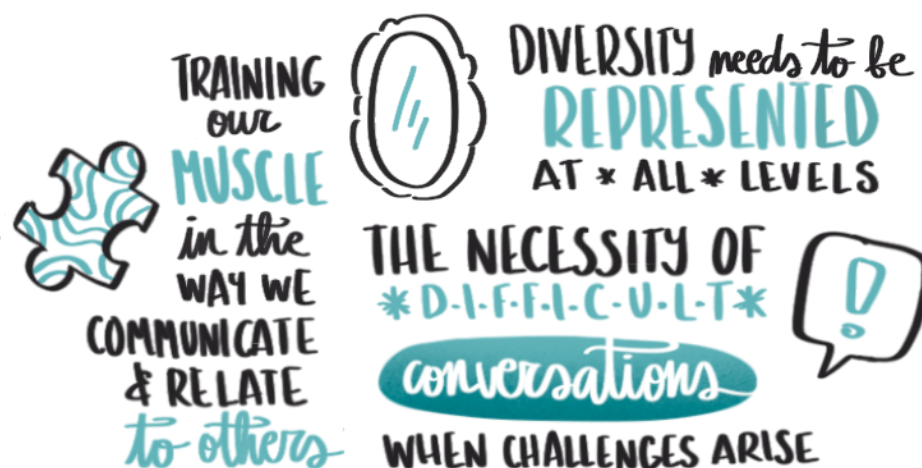 TRAINING
our
MUSCLE
in the
WAY WE
COMMUNICATE
& RELATE
to others
DIVERSITY needs to be
REPRESENTED
AT * ALL * LEVELS
THE NECESSITY OF
*D-I-F-F-I-C-U-L-T*
conversations
WHEN CHALLENGES ARISE
!